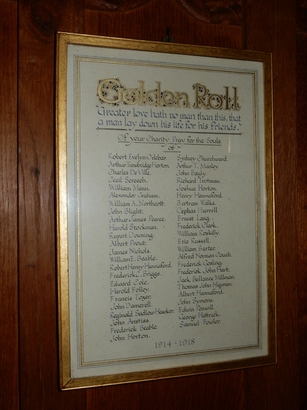 Golden Roll
"Greater love hath no man than this, that
a man lay down his life for his friends."
Of your Charity Pray for the Souls
of
Robert Evelyn
Arthur Horton.
Charles De Villi
Cecil
William Mann.
Alexander Graham.
William A. Northcott.
John Blight.
Arthur James Pearce.
Harold Stockman.
Rupert Downing.
Albert Prout.
James Nichols.
William E. Seable.
Robert Henry Hannaford.
Frederick J. Briggs.
Edward Cole.
Harold Folley.
Francis
John Damerell.
Reginald Sadlow-Hawker.
John Anstiss.
Frederick Seable
John Horton.
Sydney Churchward.
Arthur J. Manley.
John Bayly.
Richard
Joshua Horton.
Henry Hannaford.
Bertram Wills.
Cyprian Murrell.
Ernest Lang.
Frederick Clark.
William
Eric Russell.
William Carter.
Alfred Norman Couch.
Frederick Gosling.
Frederick John Hart.
Jack Bellamy
Thomas John Hayman.
Albert Hannaford.
John Symons.
Edwin
George
Samuel Fowler.
1914 - 1918